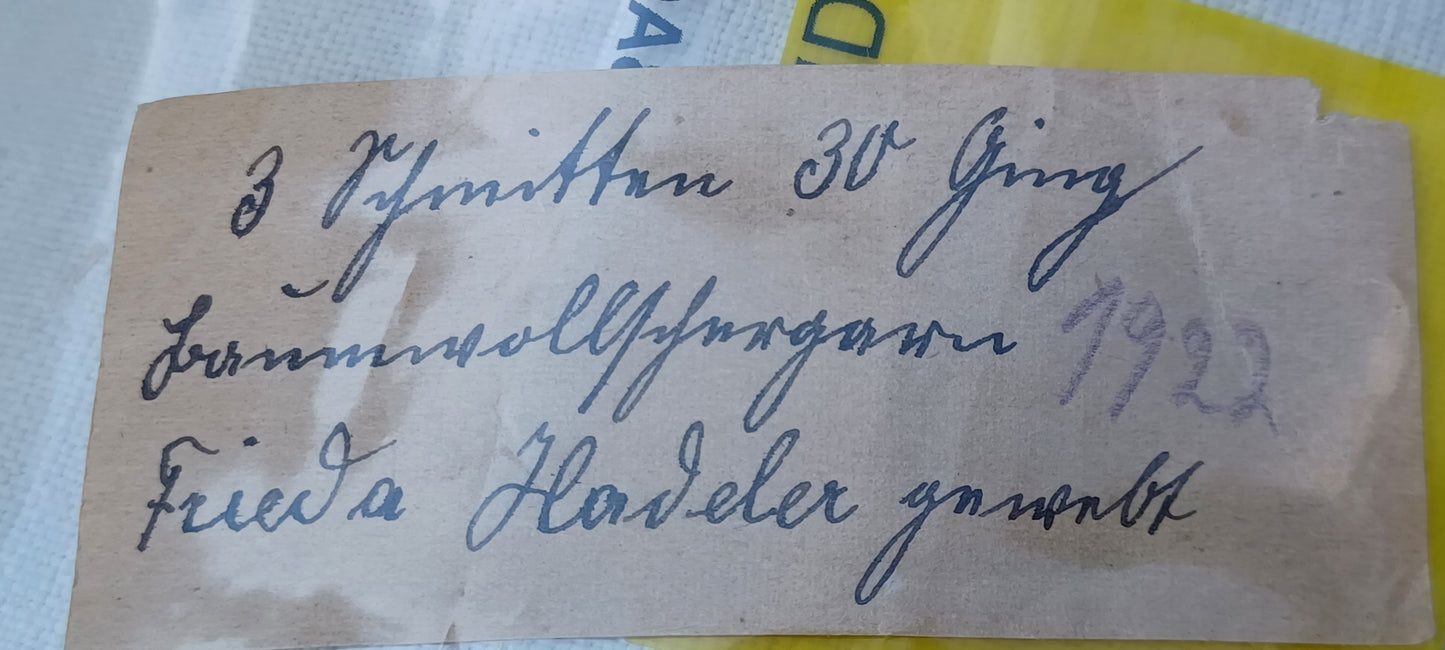 3 Schnitten 30 Ging
Baumwollschergarn 1922
Frieda Hadeler gewebt